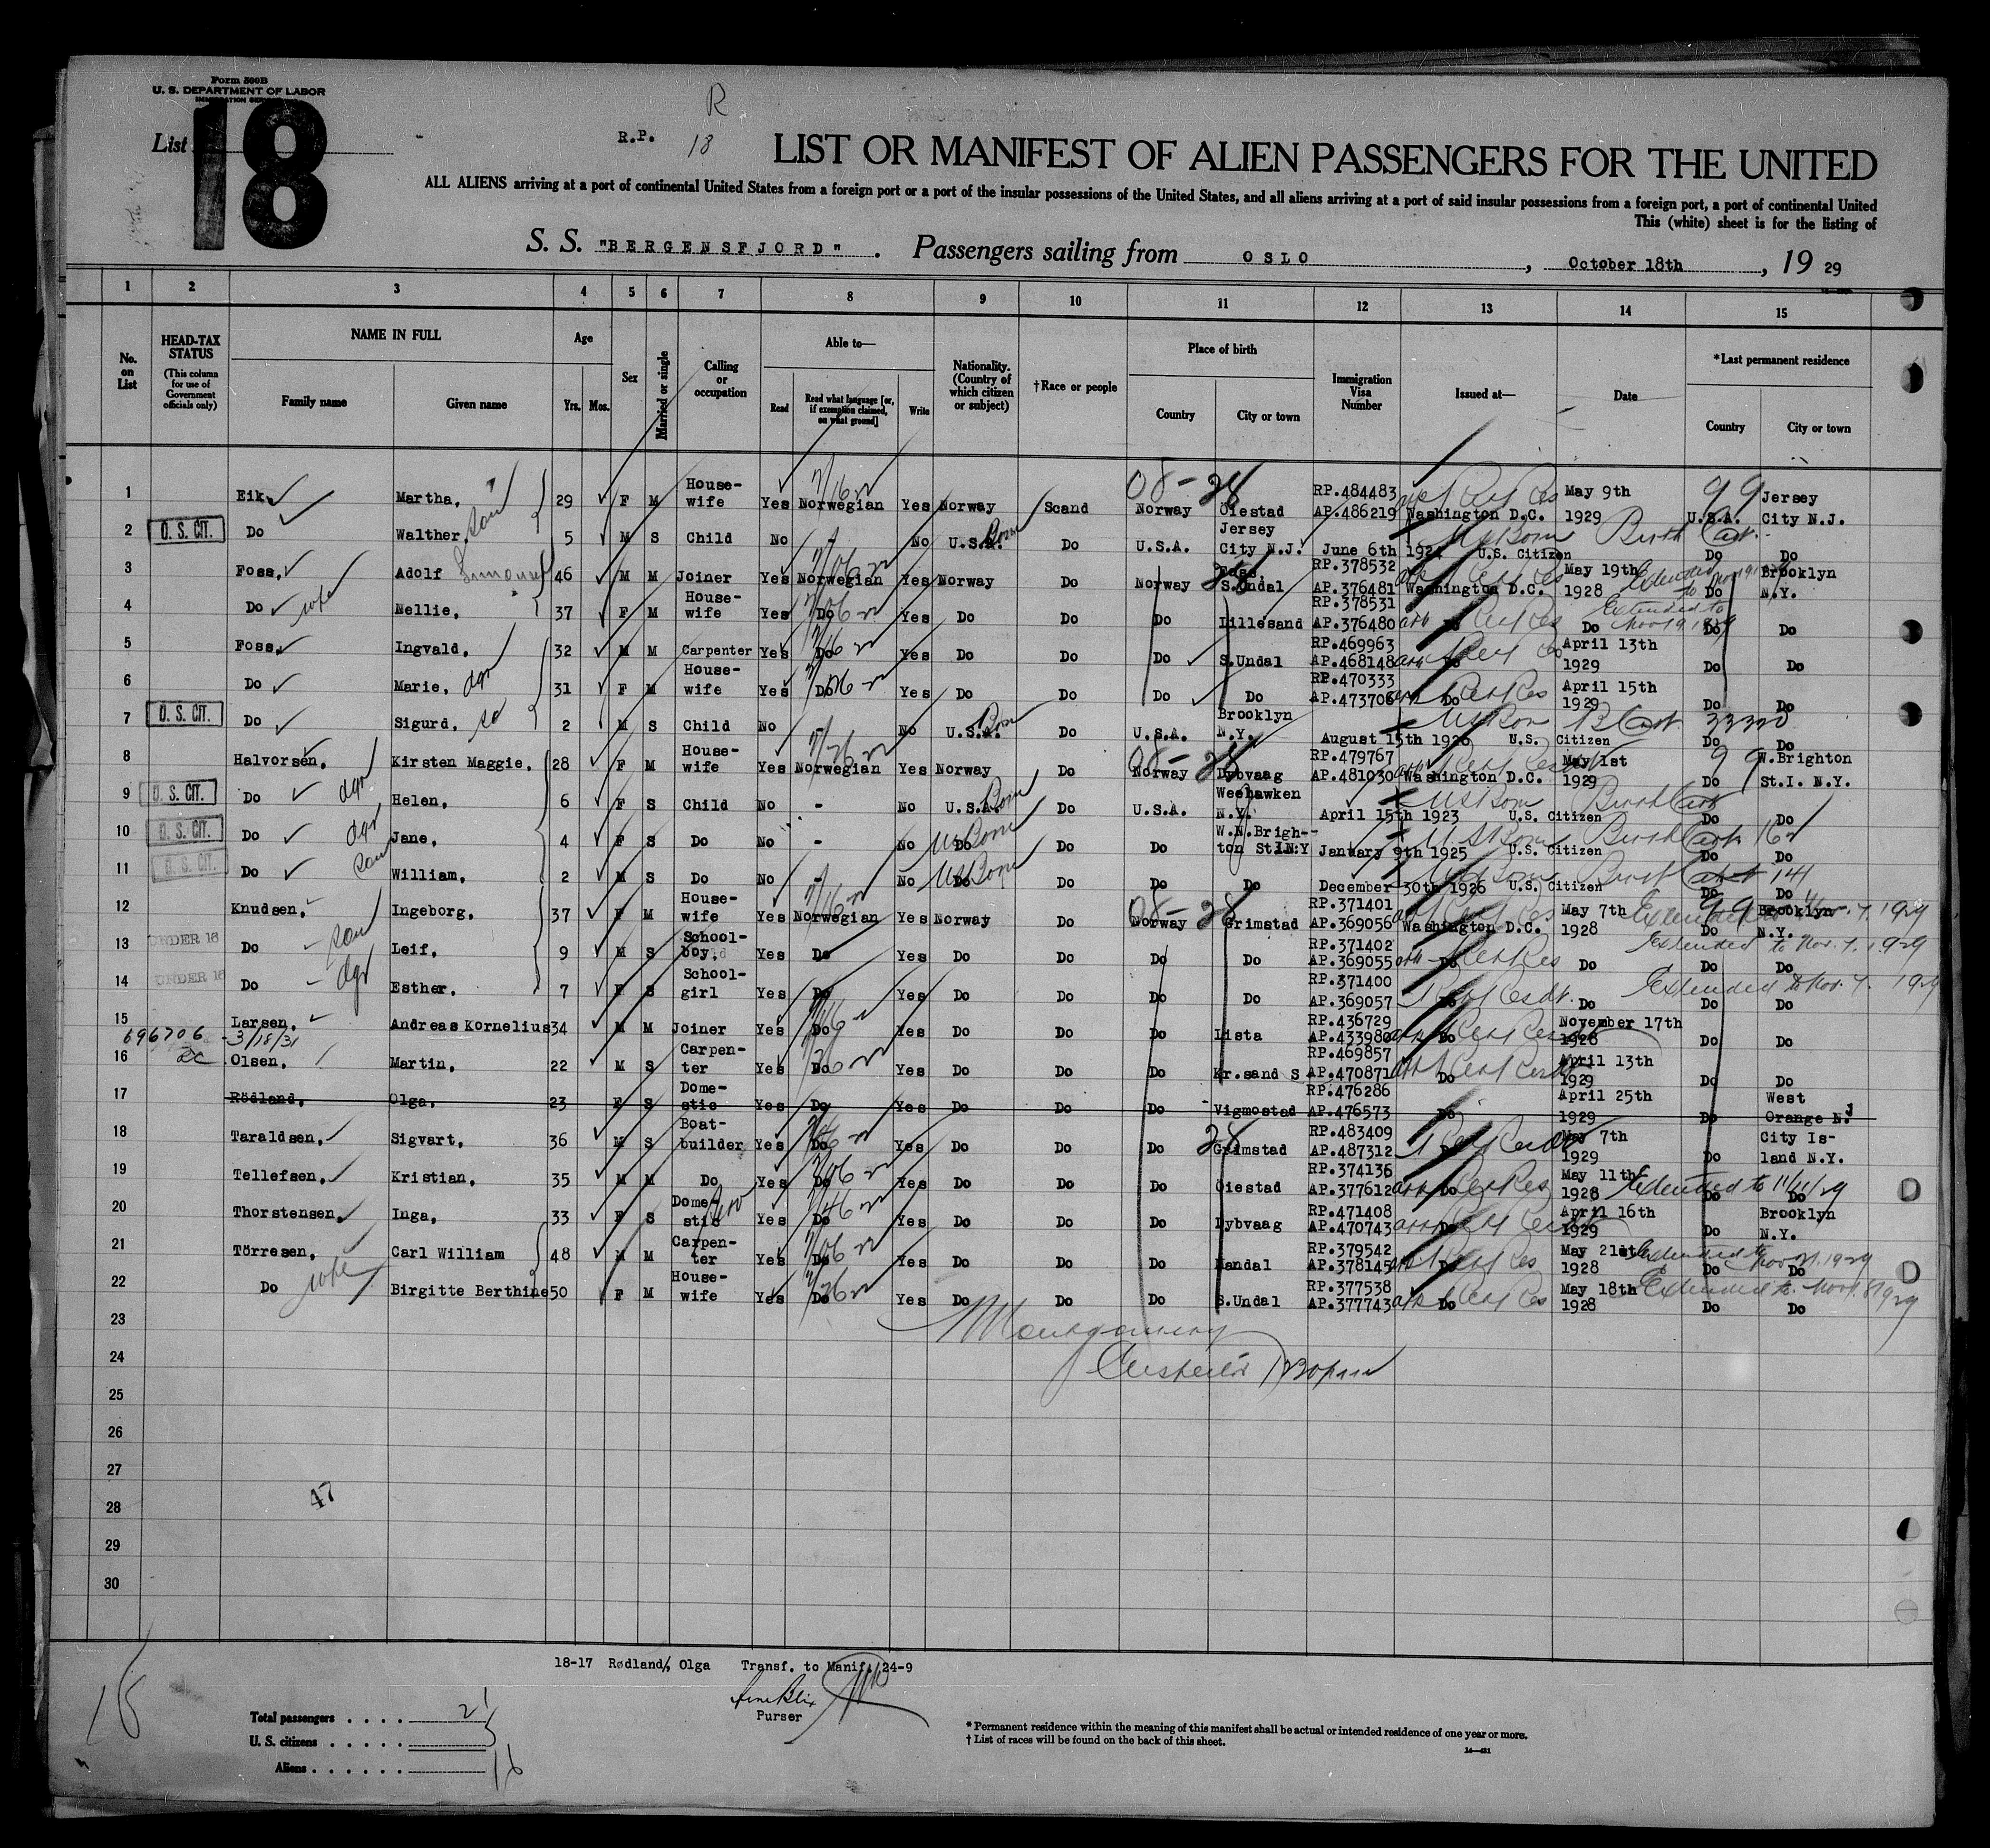 Form 500B
U. S. DEPARTMENT OF LABOR
IMMIGRATION SERVICE
List 18
R
R.P. 18
LIST OR MANIFEST OF ALIEN PASSENGERS FOR THE UNITED
ALL ALIENS arriving at a port of continental United States from a foreign port or a port of the insular possessions of the United States, and all aliens arriving at a port of said insular possessions from a foreign port, a port of continental United
This (white) sheet is for the listing of
S. S. "BERGENSFJORD". Passengers sailing from OSLO, October 18th, 19 29
1 2 3 4 5 6 7 8 9 10 11 12 13 14 15
No. on List
HEAD-TAX STATUS (This column for use of Government officials only)
NAME IN FULL Family name Given name
Age Yrs. Mos.
Sex
Married or single
Calling or occupation
Able to— Read Read what language [or, if exemption claimed, on what ground] Write
Nationality. (Country of which citizen or subject)
†Race or people
Place of birth Country City or town
Immigration Visa Number
Issued at—
Date
*Last permanent residence Country City or town
1 Eik, Martha, 29 F M House-wife Yes Norwegian Yes Norway Scand Norway Öiestad RP.484483 AP.486219 Washington D.C. May 9th 1929 U.S.A. Jersey City N.J.
2 U. S. CIT. Do Walther, son 5 M S Child No - No U.S.A. Born Do U.S.A. Jersey City N.J. June 6th 1924 U.S. Citizen US Born Birth Cert. Do Do
3 Foss, Adolf 46 M M Joiner Yes Norwegian Yes Norway Do Norway S.Undal RP.378532 AP.376481 Washington D.C. May 19th 1928 Extended to Nov 19 1929 Do Brooklyn N.Y.
4 Do wife Nellie, 37 F M House-wife Yes Do Yes Do Do Do Lillesand RP.378531 AP.376480 Do Do Extended to Nov 19 1929 Do Do
5 Foss, Ingvald, 32 M M Carpenter Yes Do Yes Do Do Do S.Undal RP.469963 AP.468148 Do April 13th 1929 Do Do
6 Do Marie, 31 F M House-wife Yes Do Yes Do Do Do Do RP.470333 AP.473706 Do April 15th 1929 Do Do
7 U. S. CIT. Do Sigurd, 2 M S Child No No U.S.A. Born Do U.S.A. Brooklyn N.Y. August 15th 1926 N.S. Citizen US Born B Cert 33320 Do Do
8 Halvorsen, Kirsten Maggie, 28 F M House-wife Yes Norwegian Yes Norway Do Norway Dybvaag RP.479767 AP.481030 Washington D.C. May 1st 1929 Do W.Brighton St.I. N.Y.
9 U. S. CIT. Do dgr Helen, 6 F S Child No - No U.S.A. Born Do U.S.A. Weehawken N.Y. April 15th 1923 U.S. Citizen US Born Birth Cert Do Do
10 U. S. CIT. Do dgr Jane, 4 F S Do No - No Do US Born Do Do W.N.Brigh-ton St.I.N.Y January 9th 1925 U.S. Citizen US Born Birth Cert Do Do
11 U. S. CIT. Do son William, 2 M S Do No - No Do US Born Do Do Do December 30th 1926 U.S. Citizen US Born Birth Cert 141 Do Do
12 Knudsen, Ingeborg, 37 F M House-wife Yes Norwegian Yes Norway Do Norway Grimstad RP.371401 AP.369056 Washington D.C. May 7th 1928 Extended Nov. 7. 1929 Do Brooklyn N.Y.
13 UNDER 16 Do son Leif, 9 M S School-boy, Yes Do Yes Do Do Do Do RP.371402 AP.369055 Do Do Extended to Nov. 7. 1929 Do Do
14 UNDER 16 Do dgr Esther, 7 F S School-girl Yes Do Yes Do Do Do Do RP.371400 AP.369057 Do Do Extended to Nov. 7. 1929 Do Do
15 Larsen, Andreas Kornelius 34 M M Joiner Yes Do Yes Do Do Do Lista RP.436729 AP.433980 Do November 17th 1928 Do Do
696706 - 3/18/31
16 Olsen, Martin, 22 M S Carpen-ter Yes Do Yes Do Do Do Kr.sand S RP.469857 AP.470871 Do April 13th 1929 Do Do
17 Rödland, Olga, 23 F S Dome-stic Yes Do Yes Do Do Do Vigmostad RP.476286 AP.476573 Do April 25th 1929 Do West Orange N.J
18 Taraldsen, Sigvart, 36 M S Boat-builder Yes Do Yes Do Do Do Grimstad RP.483409 AP.487312 May 7th 1929 Do City Is-land N.Y.
19 Tellefsen, Kristian, 35 M M Do Yes Do Yes Do Do Do Öiestad RP.374136 AP.377612 Do May 11th 1928 Extended to 11/11/29 Do Do
20 Thorstensen, Inga, 33 F S Dome-stic Yes Do Yes Do Do Do Dybvaag RP.471408 AP.470743 Do April 16th 1929 Do Brooklyn N.Y.
21 Törresen, Carl William 48 M M Carpen-ter Yes Do Yes Do Do Do Mandal RP.379542 AP.378145 May 21st 1928 Extended to Nov 21. 1929 Do Do
22 Do wife Birgitte Berthine 50 F M House-wife Yes Do Yes Do Do Do S.Undal RP.377538 AP.377743 Do May 18th 1928 Extended to Nov. 18 1929 Do Do
23 Montgomery
24 Inspector 1230pm
25
26
27
28 47
29
30
18-17 Rødland, Olga Transf. to Manif. 24-9
Purser
18
Total passengers . . . . 21
U. S. citizens . . . . . 5
Aliens . . . . . . 16
* Permanent residence within the meaning of this manifest shall be actual or intended residence of one year or more.
† List of races will be found on the back of this sheet.
14—421